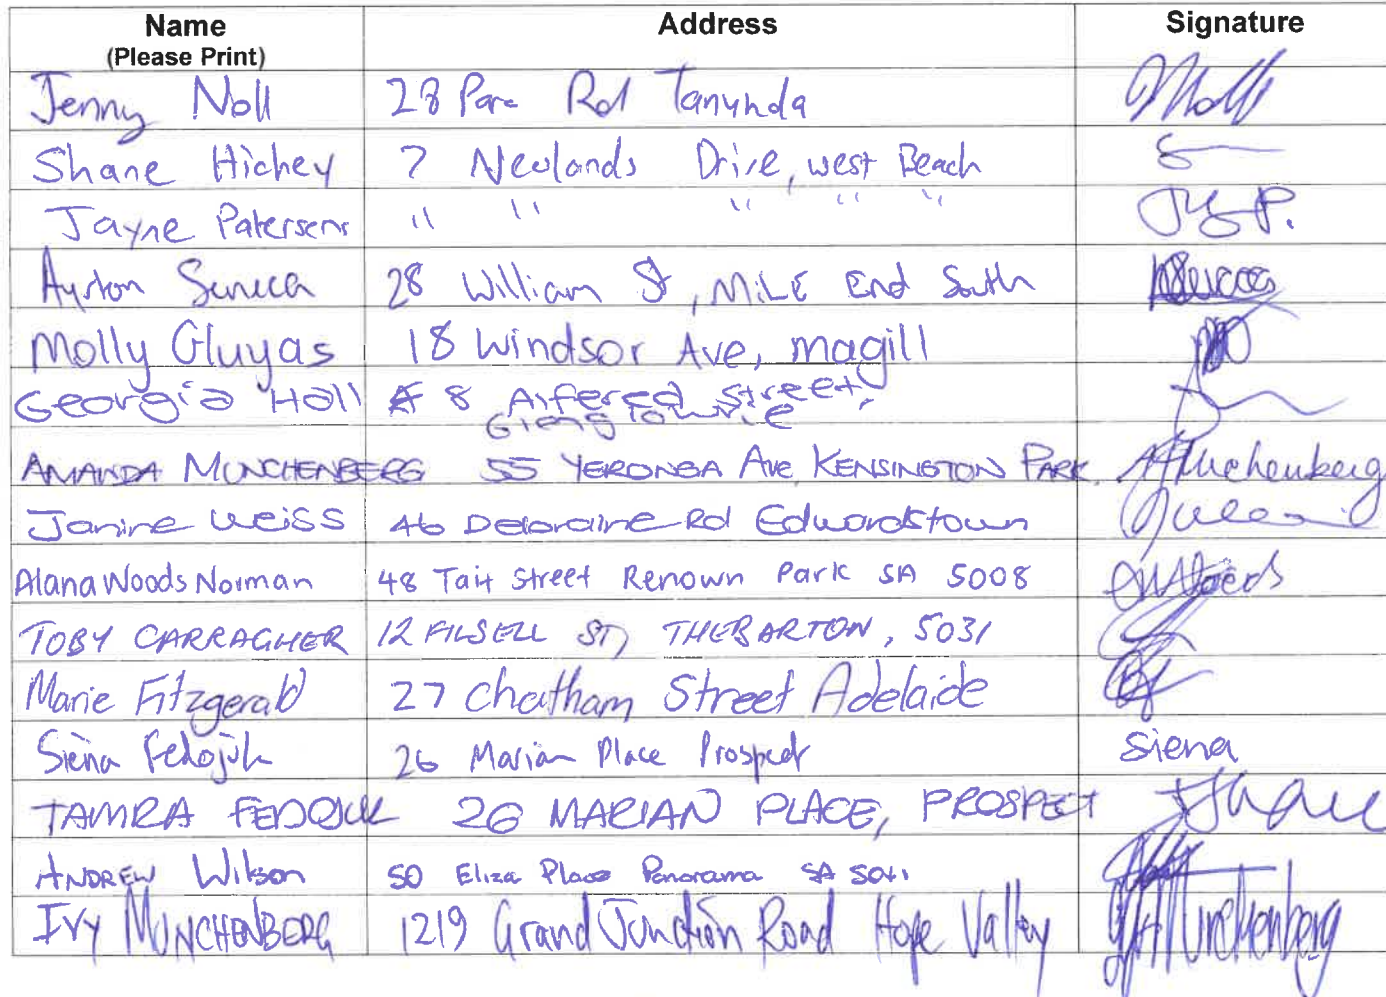 Name Address Signature
(Please Print)
Jenny Noll 28 Para Rd Tanunda
Shane Hickey 7 Newlands Drive, west Beach
Jayne Patersen " " " " "
Ayrton Seneca 28 William St, MiLE End South
Molly Gluyas 18 Windsor Ave, magill
Georgia Hall 8 Alfered Street,
Glengtownie
AMANDA MUNCHENBERG 55 YERONGA Ave, KENSINGTON PARK. AMunchenberg
Janine Weiss 46 Deloraine Rd Edwardstown
Alana Woods Norman 48 Tait Street Renown Park SA 5008 AWoods
TOBY CARRAGHER 12 FILSELL ST, THEBARTON, 5031
Marie Fitzgerald 27 Chatham Street Adelaide
Siena Fedojuk 26 Marian Place Prospect Siena
TAMRA FEDOJUK 26 MARIAN PLACE, PROSPECT
ANDREW Wilson 50 Eliza Place Panorama SA 5041
IVY MUNCHENBERG 1219 Grand Junction Road Hope Valley IMunchenberg